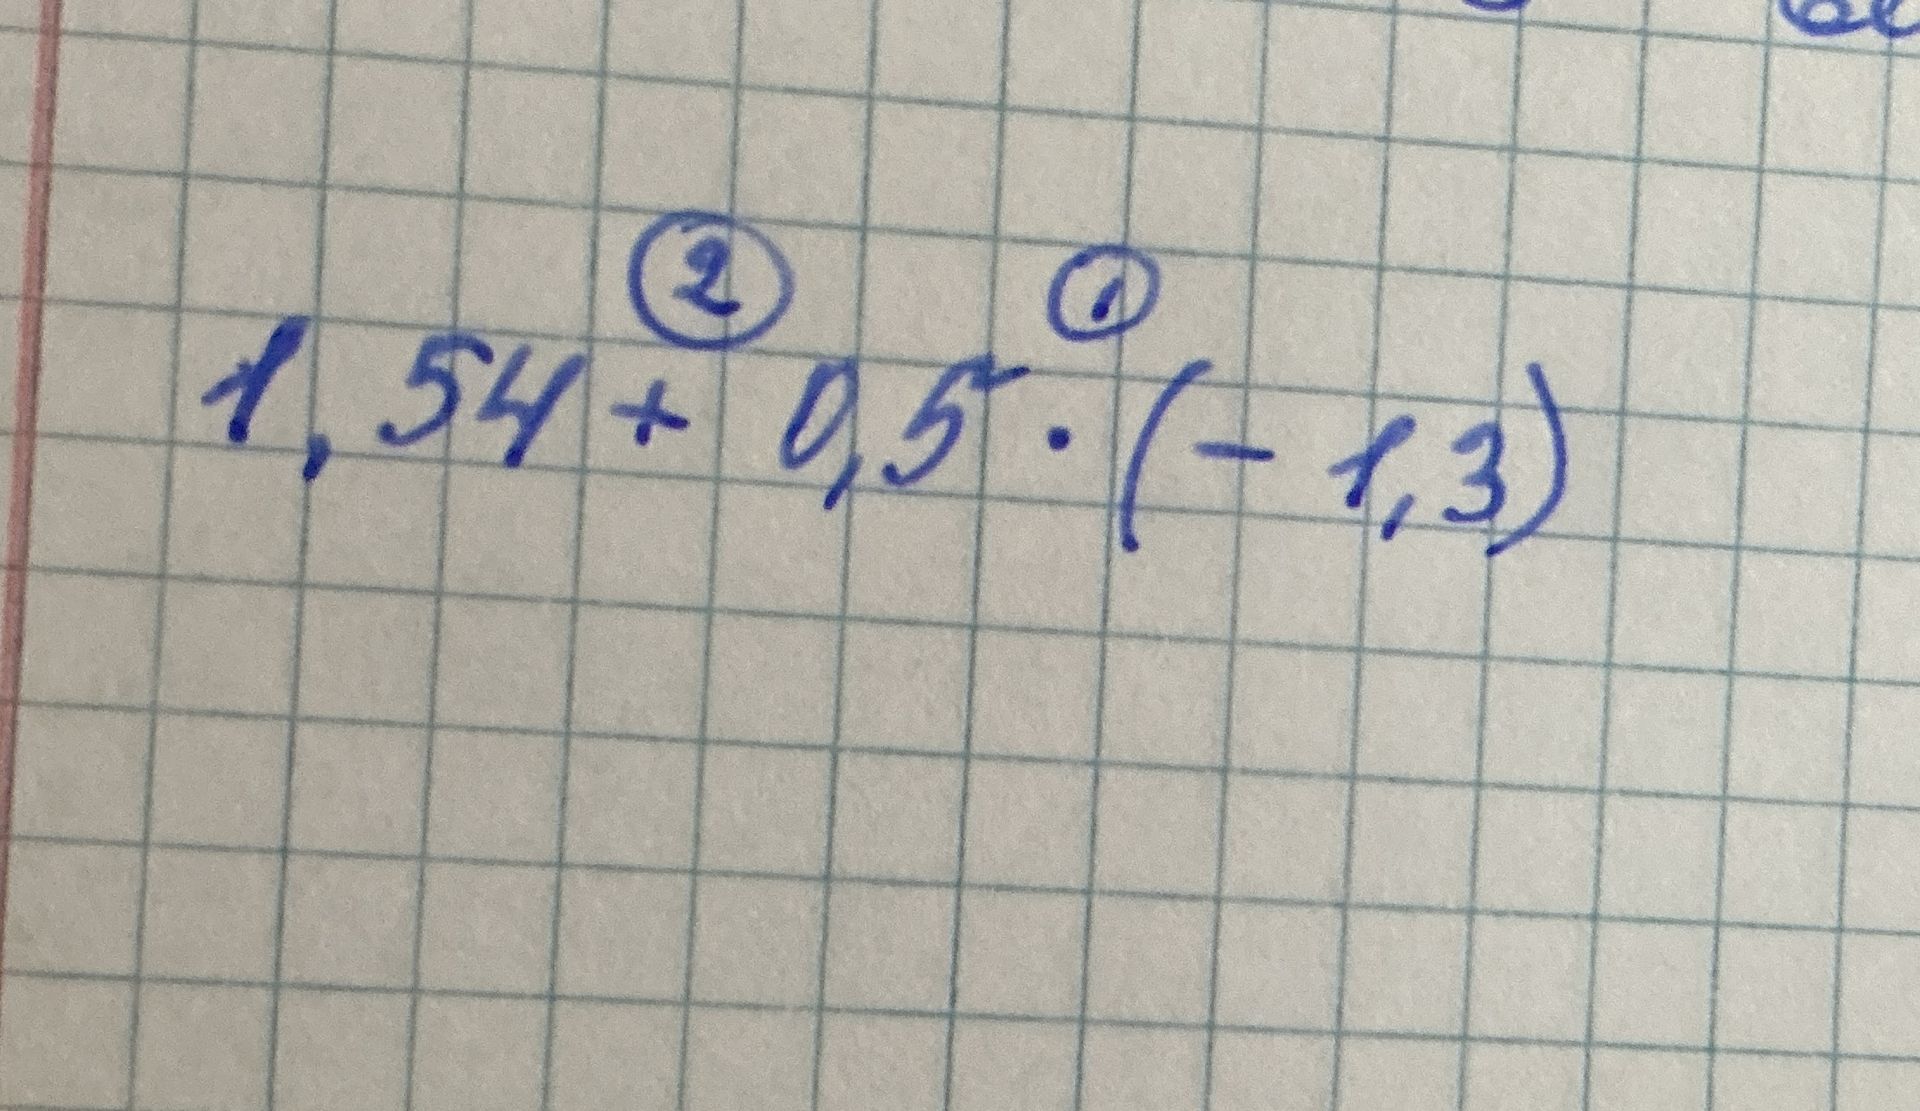 ② ①
1,54 + 0,5 · (- 1,3)